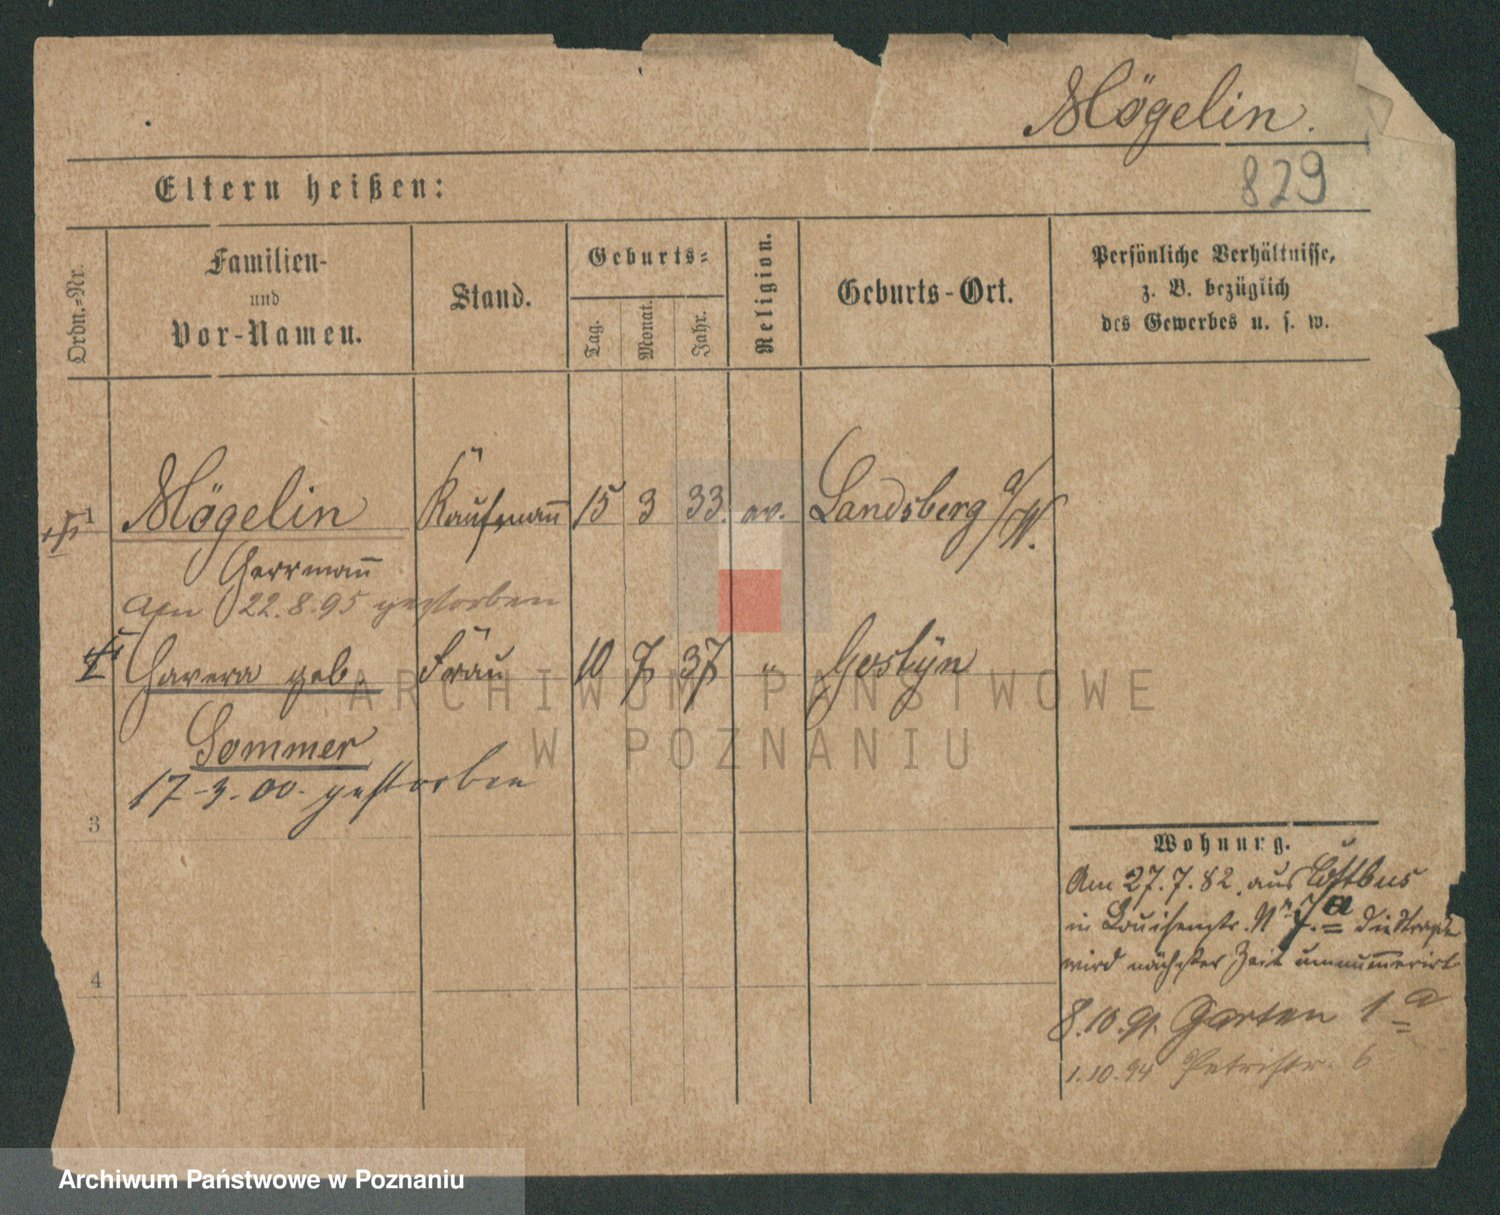 Mögelin.
829
Eltern heißen:
Ordn.-Nr.
Familien-
und
Vor-Namen.
Stand.
Geburts-
Tag.
Monat.
Jahr.
Religion.
Geburts-Ort.
Persönliche Verhältnisse,
z. B. bezüglich
des Gewerbes u. s. w.
1 Mögelin Kaufmann 15 3 33. ev. Landsberg a/W.
Herrmann
Am 22.8.95 gestorben
geb. Frau 10 7 37 " Gostÿn
Sommer
17-3-00. gestorben
3
4
Wohnung.
Am 27.7.82. aus Cottbus
in Louisenstr. Nr 7.a die Straße
wird nächster Zeit umnummerirt
8.10.91. Garten 1 a
1.10.94 Petristr. 6
ARCHIWUM PAŃSTWOWE
W POZNANIU
Archiwum Państwowe w Poznaniu